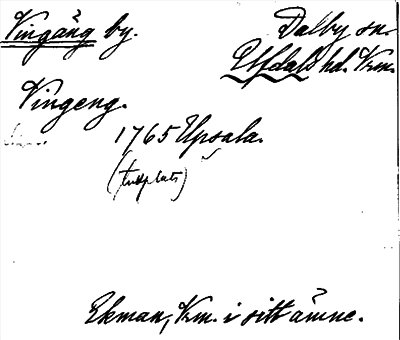 Vingäng by.
Dalby sn.
Elfdals hd. Vrm.
Vingeng.
1765 Upsala.
Ekman, Vrm. i sitt ämne.